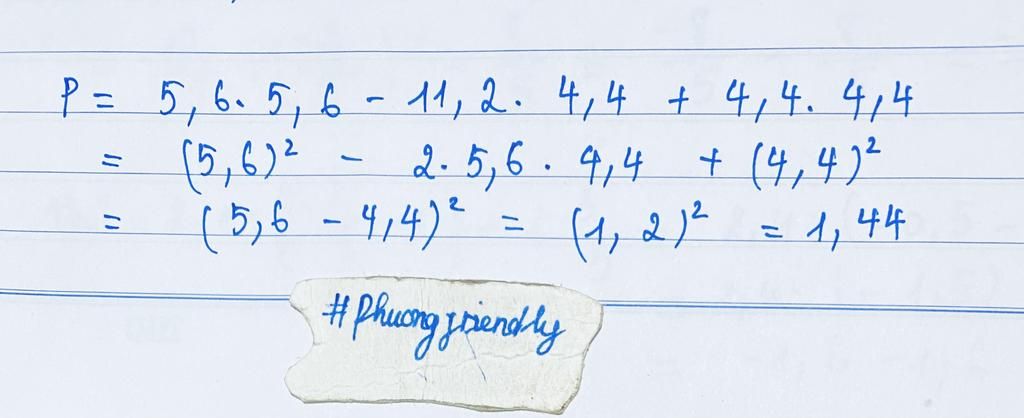 P = 5,6. 5,6 - 11,2. 4,4 + 4,4. 4,4
= (5,6)² - 2. 5,6 . 4,4 + (4,4)²
= (5,6 - 4,4)² = (1,2)² = 1,44
#Phuongfriendly